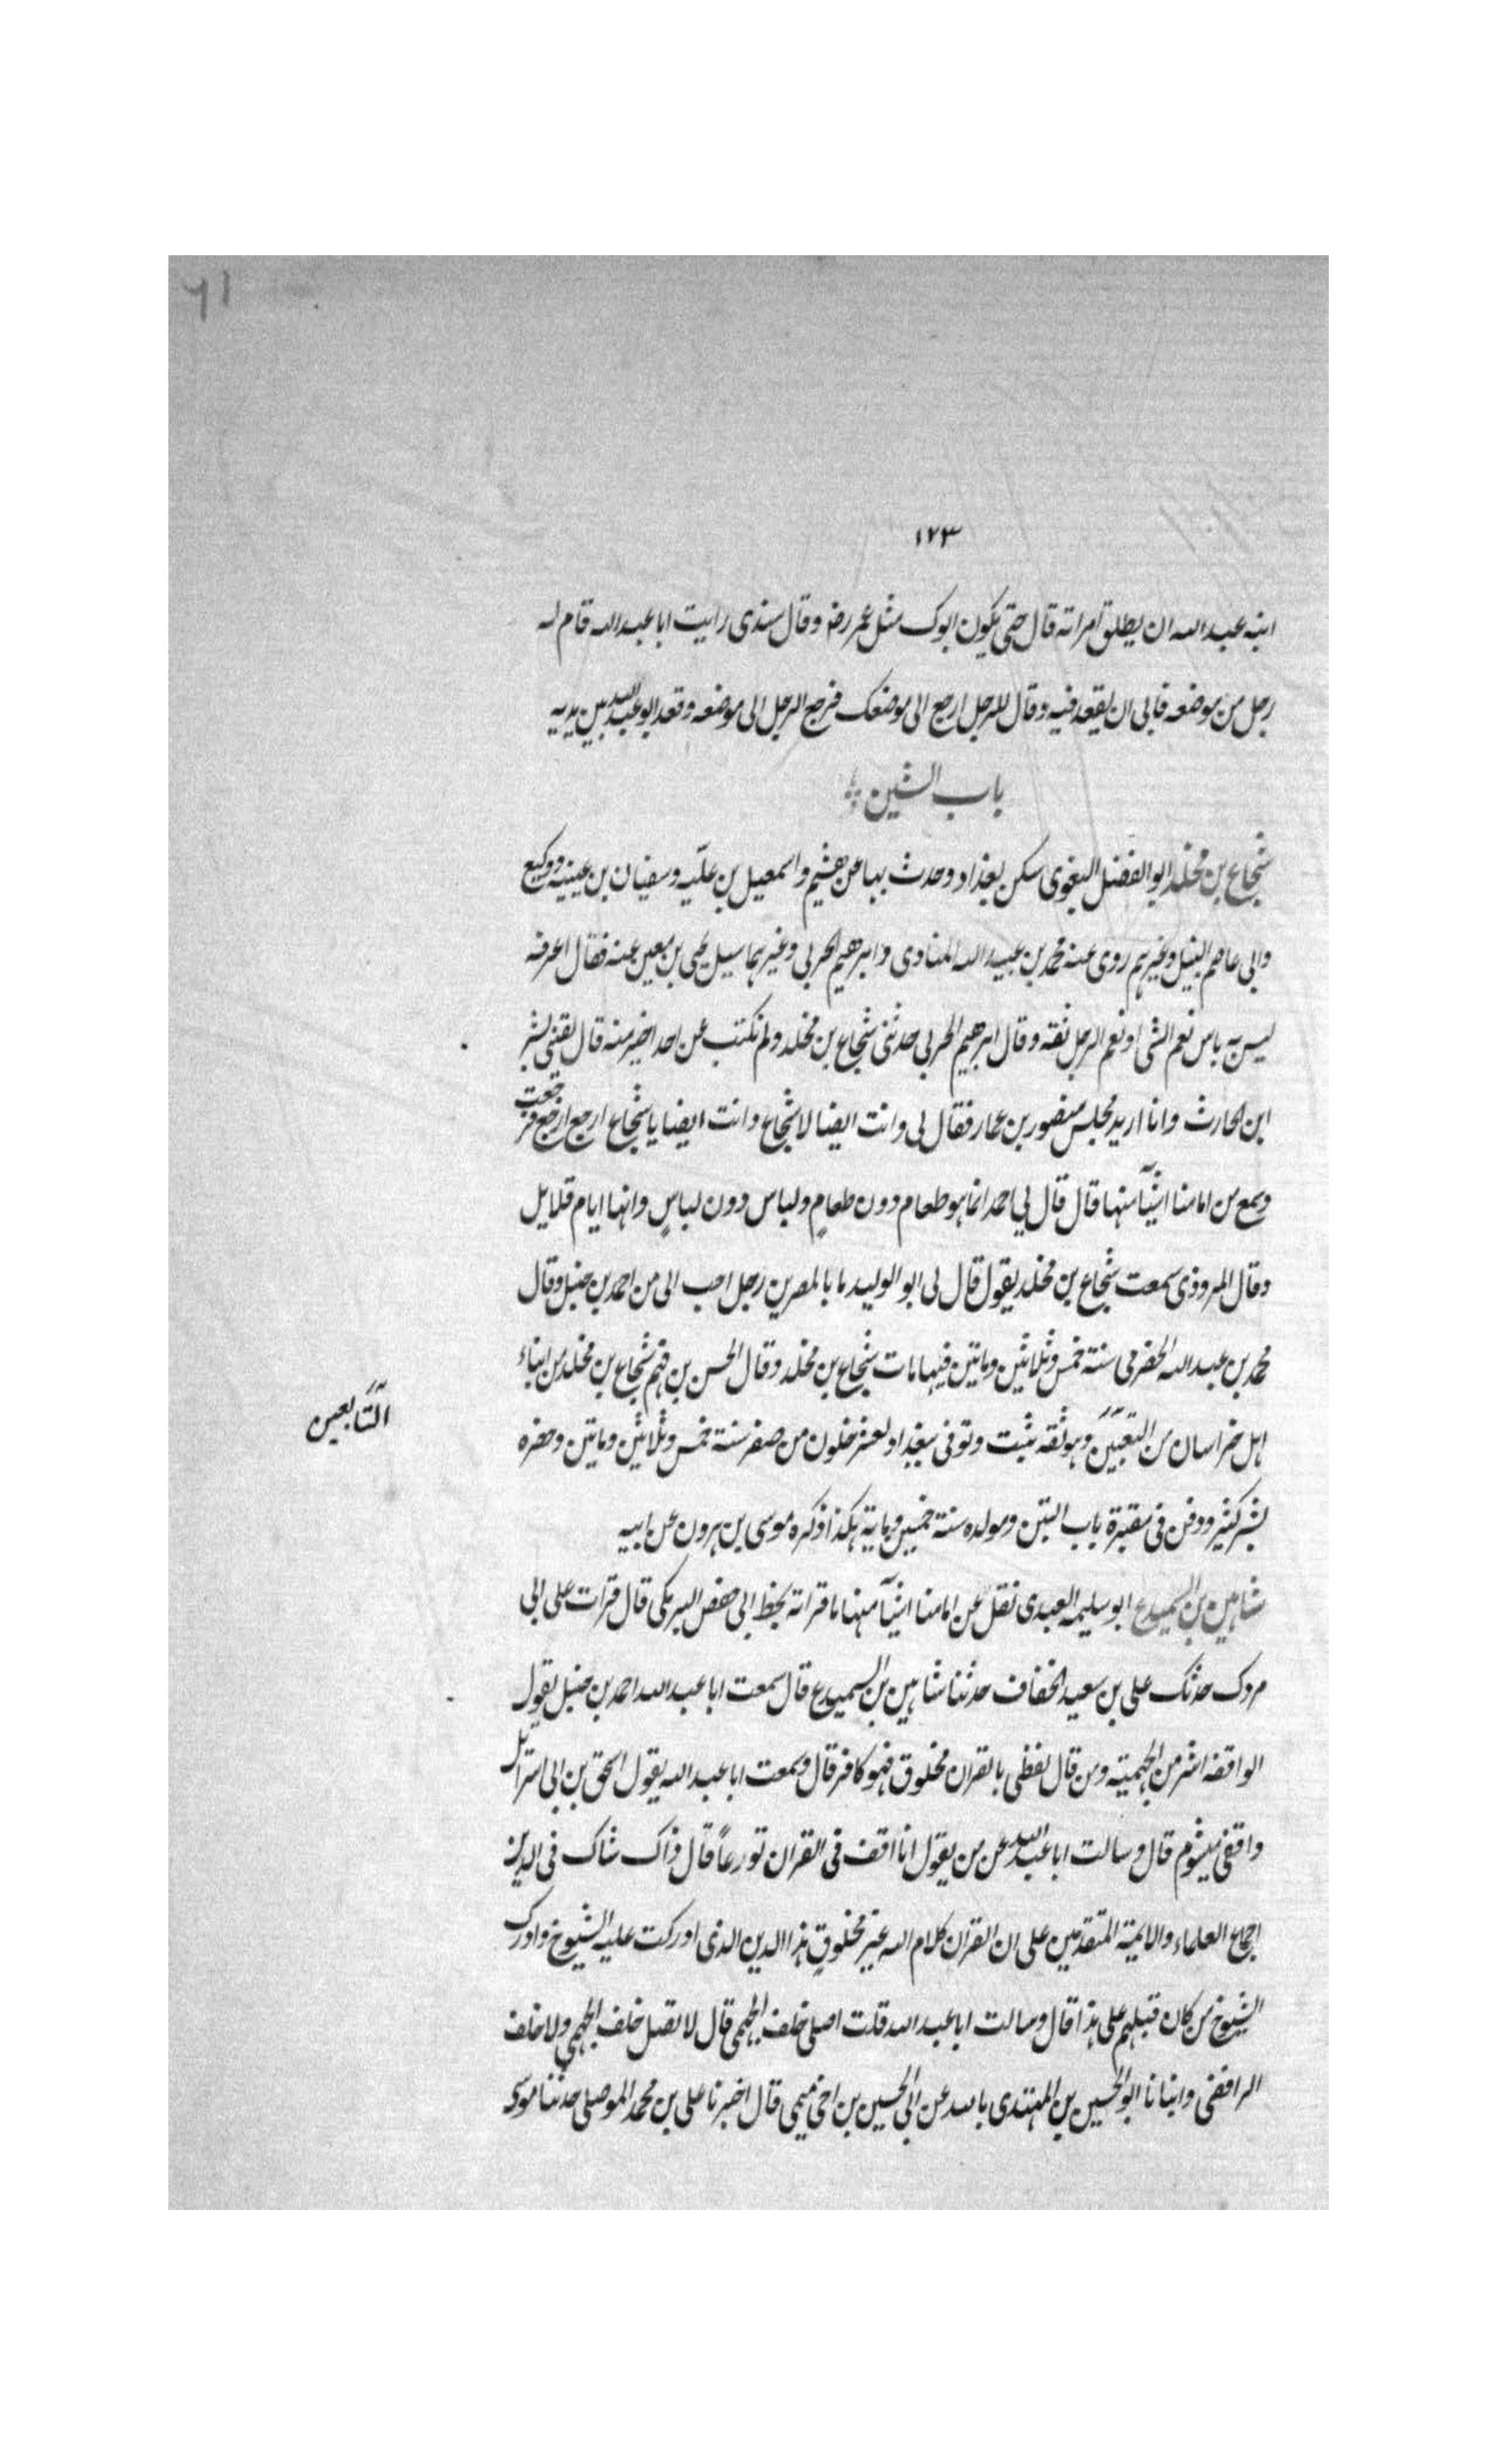 ٦١
١٢٣
ابنه عبد الله ان يطلق امراته قال حتى يكون ابوك مثل عمر رضه وقال سندى رايت ابا عبد الله قام له
رجل من موضعه فابى ان يقعد فيه وقال للرجل ارجع الى موضعك فرجع الرجل الى موضعه وقعد ابو عبد الله بين يديه
باب الشين
شجاع بن مخلد ابو الفضل البغوى سكن بغداد وحدث بها عن هشيم واسمعيل بن علية وسفيان بن عيينه ووكيع
وابى عاصم النبيل وغيرهم روى عنه محمد بن عبيد الله المنادى وابرهيم الحربى وغيرهما سيل يحيى بن معين عنه فقال اعرفه
ليس به باس نعم الشى او نعم الرجل ثقه وقال ابرهيم الحربى حدثنى شجاع بن مخلد ولم نكتب عن احد اخير منه قال لقينى بشر
ابن الحارث وانا اريد مجلس منصور بن عمار فقال لى وانت ايضا لا شجاع وانت ايضا يا شجاع ارجع ارجع فرجعت
وسمع من امامنا اشيآ منها قال قال لي احمد انما هو طعام دون طعامٍ ولباس دون لباسٍ وانها ايام قلايل
وقال المروذى سمعت شجاع بن مخلد يقول قال لى ابو الوليد ما بالمصرين رجل احب الى من احمد بن حنبل وقال
محمد بن عبد الله الحضرمى سنة خمس وثلاثين وماتين فيها مات شجاع بن مخلد وقال الحسن بن فهم شجاع بن مخلد من ابناء
اهل خراسان من التعبيين وهو ثقه ثبت وتوفى ببغداد لعشر خلون من صفر سنة خمس وثلاثين وماتين وحضره
التابعين
بشر كثير ودفن فى مقبرة باب التبن ومولده سنة خمسين وماية هكذا ذكره موسى بن هرون عن ابيه
شاهين بن السميدع ابو سليمه العبدى نقل عن امامنا اشيآ منها ما قراته بخط ابى حفص البرمكى قال قرات على ابى
مردك حدثك على بن سعيد الخفاف حدثنا شاهين بن السميدع قال سمعت ابا عبد الله احمد بن حنبل يقول
الواقفه اشر من الجهمية ومن قال لفظى بالقران مخلوق فهو كافر قال وسمعت ابا عبد الله يقول اسحق بن ابى اسرائيل
واقفى ميشوم قال وسالت ابا عبد الله عن من يقول انا اقف فى القران تورعاً قال ذاك شاك فى الدين
اجماع العلماء والايمة المتقدمين على ان القران كلام الله غير مخلوقٍ هذا الدين الذى ادركت عليه الشيوخ وادرك
الشيوخ من كان قبلهم على هذا قال وسالت ابا عبد الله قلت اصلى خلف الجهمى قال لا تصل خلف الجهمى ولا خلف
الرافضى وانبانا ابو الحسين بن المهتدى بالله عن ابى الحسين بن اخى ميمى قال اخبرنا على بن محمد الموصلى حدثنا موسى